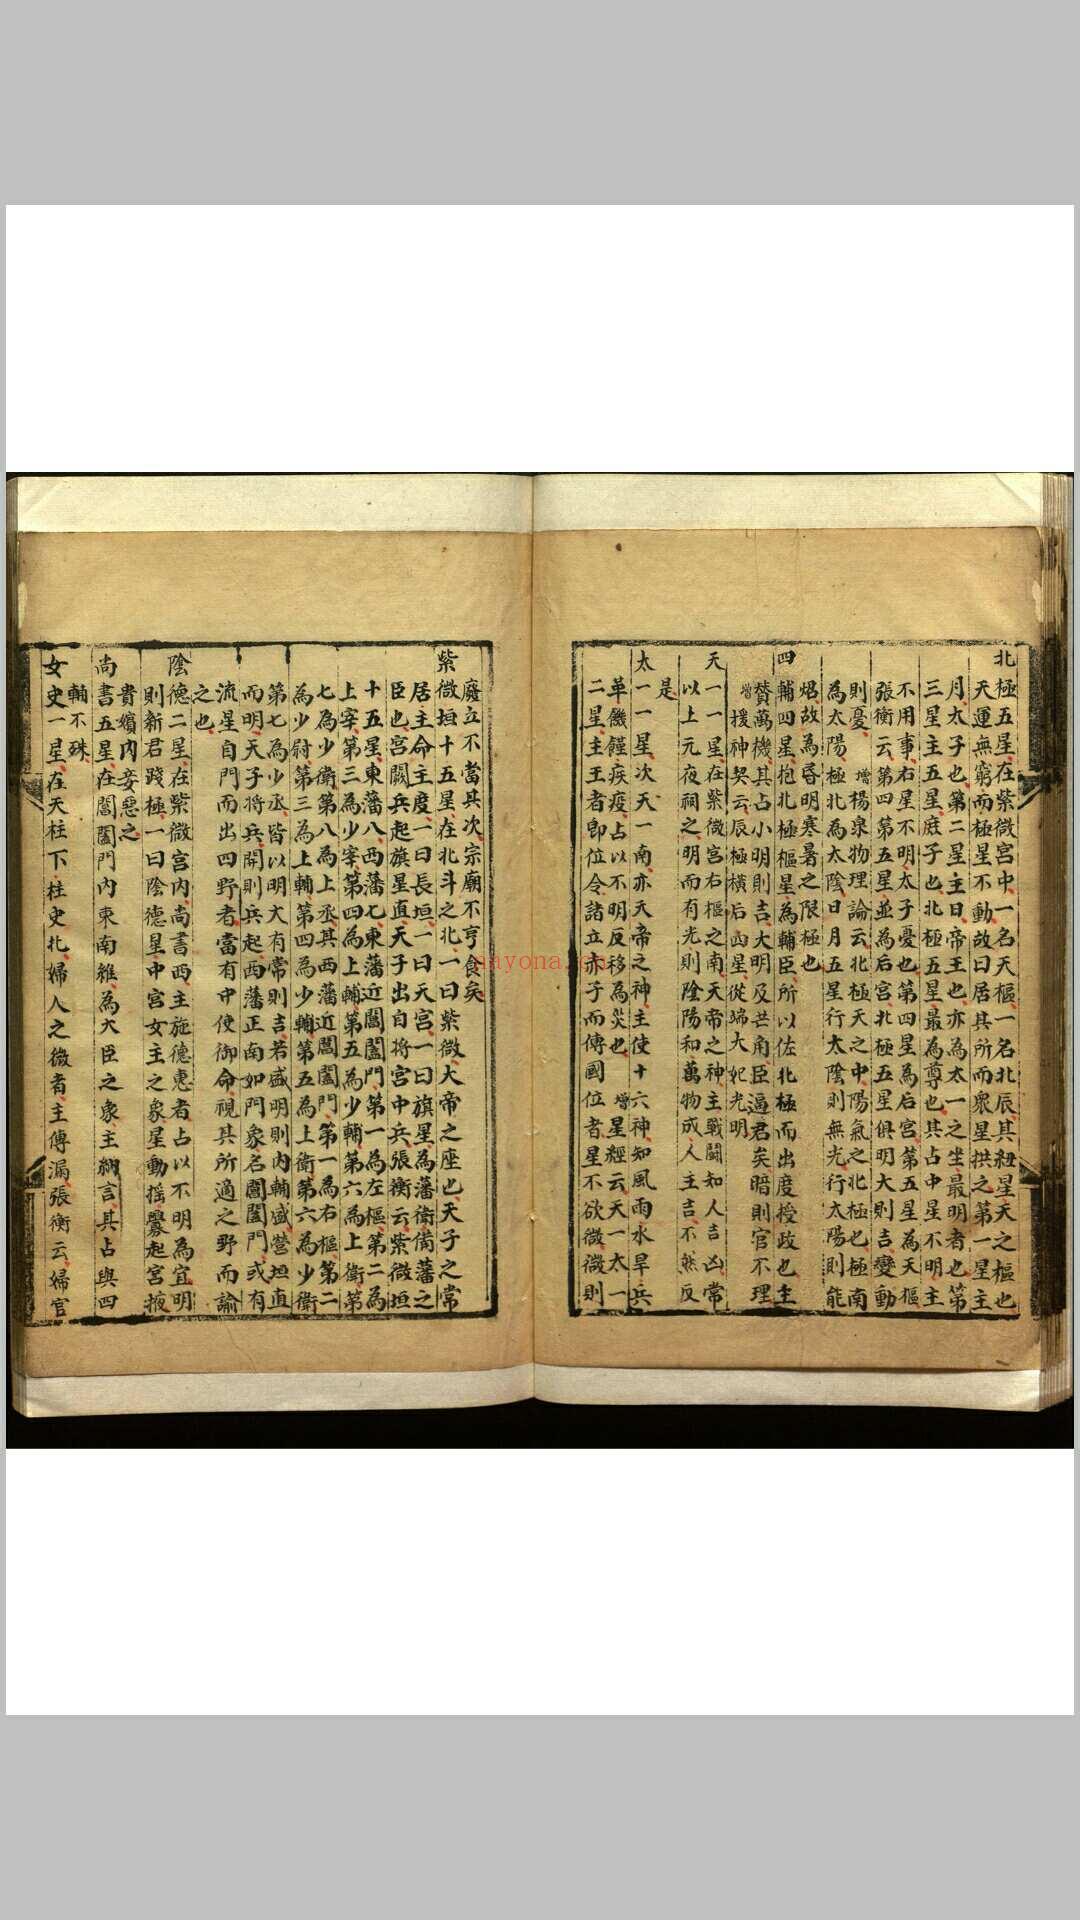 北極五星在紫微宮中一名天樞一名北辰其紐星天之樞也
天運無窮而極星不動故曰居其所而衆星拱之第一星主
月太子也第二星主日帝王也亦為太一之坐最明者也第
三星主五星庶子也北極五星最為尊也其占中星不明主
不用事右星不明太子憂也第四星為后宮第五星為天樞
張衡云第四第五星並為后宮北極五星俱明大則吉變動
則憂增楊泉物理論云北極天之中陽氣之北極也極南
為太陽極北為太陰日月五星行太陰則無光行太陽則能
炤故為昏明寒暑之限極也
四輔四星抱北極樞星為輔臣所以佐北極而出度授政也主
賛萬機其占小明則吉大明及芒角臣逼君矣暗則官不理
增援神契云辰極橫后四星從端大妃光明
天一一星在紫微宮右樞之南天帝之神主戰鬪知人吉凶常
以上元夜祠之明而有光則陰陽和萬物成人主吉不然反
是
太一一星次天一南亦天帝之神主使十六神知風雨水旱兵
革饑饉疾疫占以不明反移為災也增星經云天一太一
二星主王者即位令諸立赤子而傳國位者星不欲微微則
廢立不當其次宗廟不亨食矣
紫微垣十五星在北斗之北一曰紫微大帝之座也天子之常
居主命主度一曰長垣一曰天宮一曰旗星為藩衛備藩之
臣也宮闕兵起旗星直天子出自將宮中兵張衡云紫微垣
十五星東藩八西藩七東藩近閶闔門第一為左樞第二為
上宰第三為少宰第四為上輔第五為少輔第六為上衛第
七為少衛第八為上丞其西藩近閶闔門第一為右樞第二
為少尉第三為上輔第四為少輔第五為上衛第六為少衛
第七為少丞皆以明大有常則吉若盛明則內輔盛營垣直
而明天子將兵開則兵起西藩正南如門象名閶闔門或有
流星自門而出四野者當有中使御命視其所適之野而論
之也
陰德二星在紫微宮內尚書西主施德惠者占以不明為宜明
則新君踐極一曰陰德星中宮女主之象星動搖釁起宮掖
貴嬪內妾惡之
尚書五星在閶闔門內東南維為大臣之象主納言其占與四
輔不殊
女史一星在天柱下柱史北婦人之微者主傳漏張衡云婦官
nayona.cn